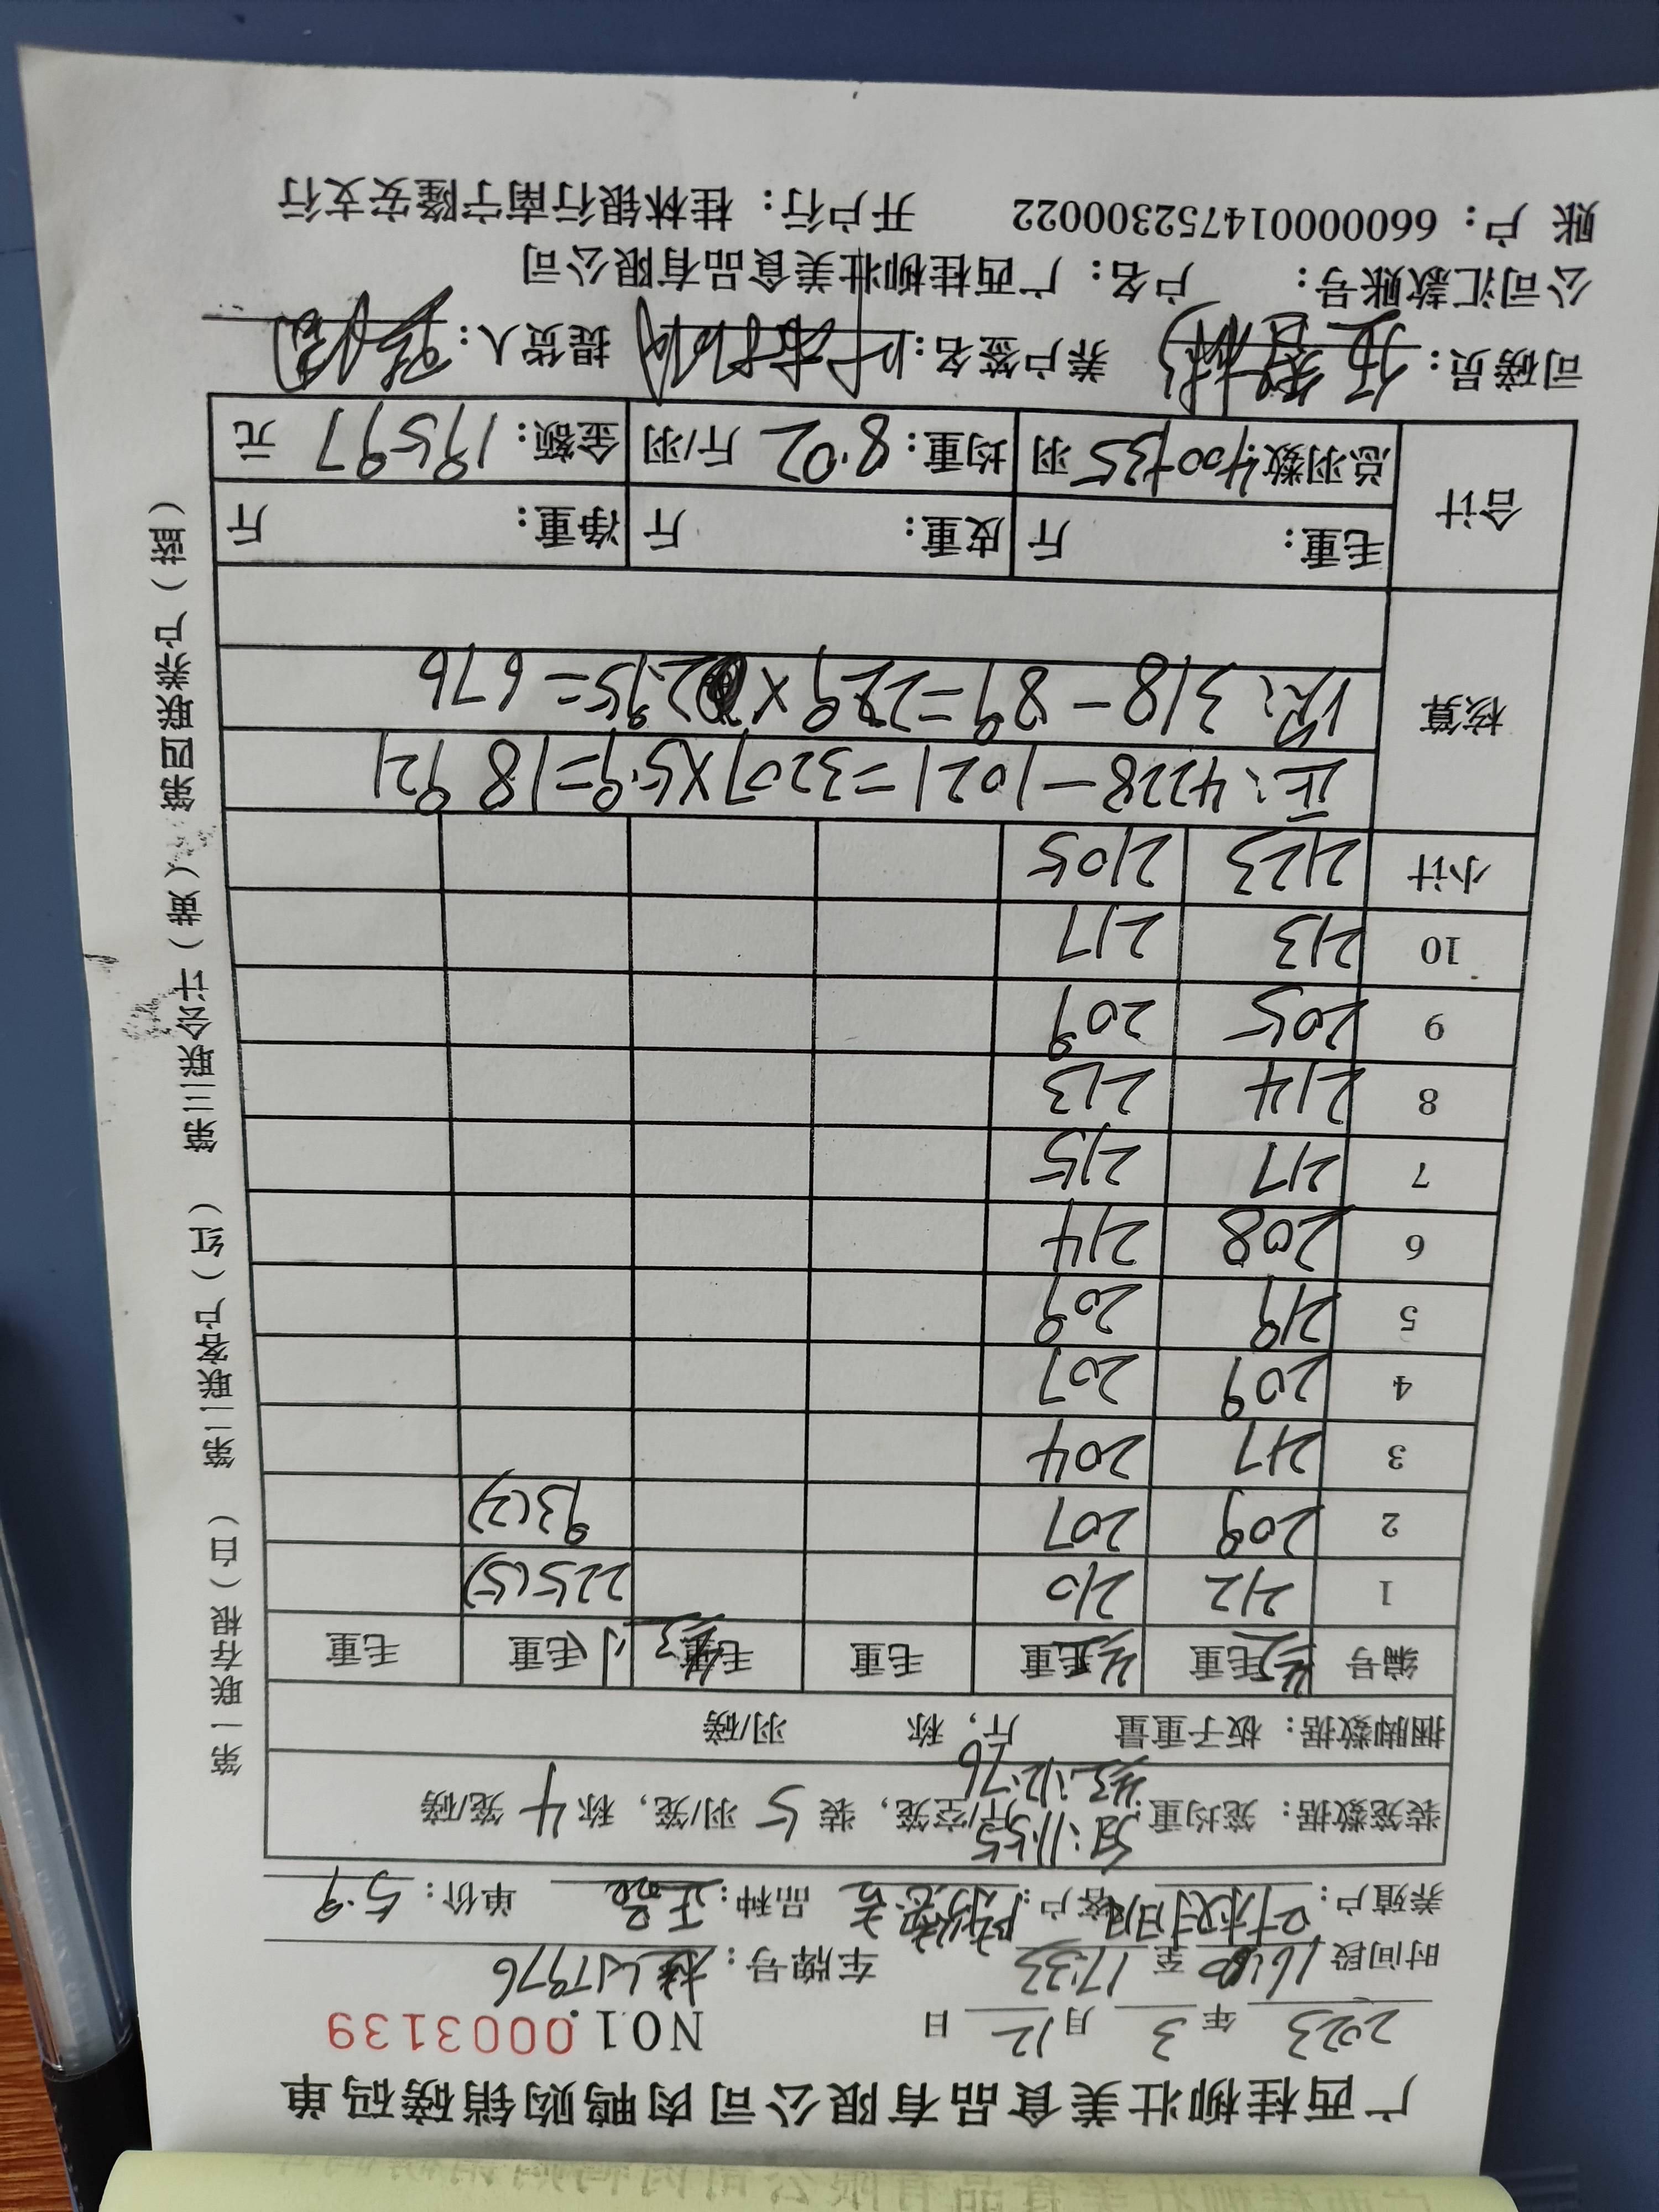 广西桂柳壮美食品有限公司肉鸭购销磅码单
2023 年 3 月 12 日 NO1.0003139
时间段 至 17:33 车牌号:
养殖户: 客户: 品种:正品 单价:5.9
装笼数据:笼均重: 斤/空笼,装 5 羽/笼,称 4 笼/磅
:11.55
:12.76
捆脚数据:板子重量 斤,称 羽/磅
编号 毛重 毛重 毛重 毛重 小毛重 毛重
1 212 210 225(5)
2 209 207 93(2)
3 217 204
4 209 207
5 219 209
6 208 214
7 217 215
8 214 213
9 205 209
10 213 217
小计 2123 2105
核算 正:4228-1021=3207×5.9=18921
:318-89=229×2.95=676
合计 毛重: 斤 皮重: 斤 净重: 斤
总羽数:400+35 羽 均重:8.02 斤/羽 金额:19597 元
司磅员: 养户签名: 提货人:
公司汇款账号: 户名:广西桂柳壮美食品有限公司
账 户:660000014752300022 开户行:桂林银行南宁隆安支行
第一联存根(白) 第二联客户(红) 第三联会计(黄) 第四联养户(蓝)